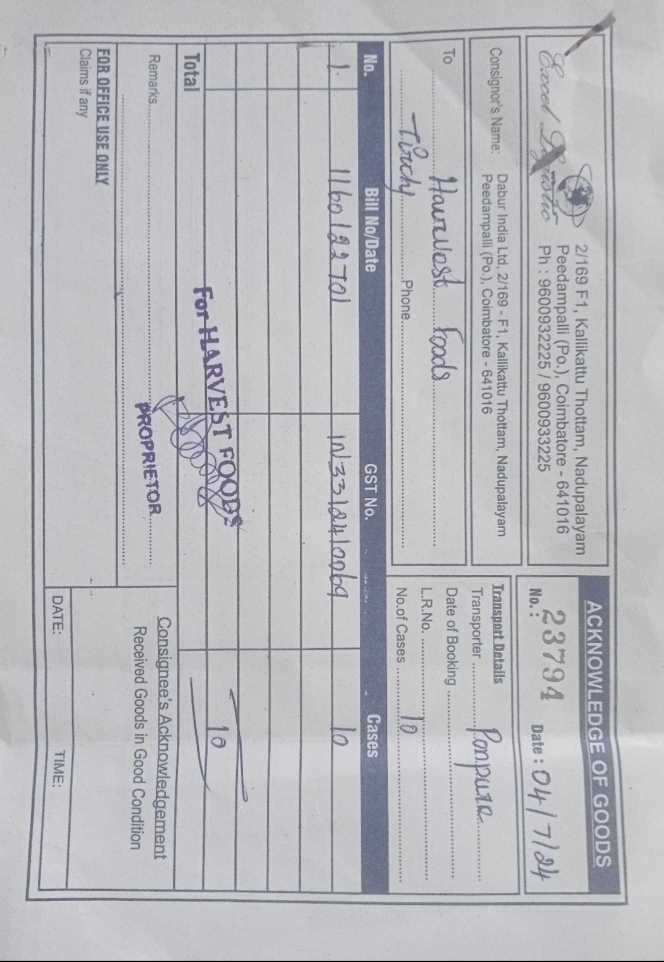 ACKNOWLEDGE OF GOODS
Excel Logistic
2/169 F1, Kallikattu Thottam, Nadupalayam
Peedampalli (Po.), Coimbatore - 641016
Ph : 9600932225 / 9600933225
No. : 23794 Date : 04/7/24
Consignor's Name: Dabur India Ltd, 2/169 - F1, Kallikattu Thottam, Nadupalayam
Peedampalli (Po.), Coimbatore - 641016
To Harvest Foods
Tirchy Phone
Transport Details
Transporter
Date of Booking
L.R.No.
No.of Cases 10
No. Bill No/Date GST No. Cases
1. 1160122701 IN3312410069 10
Total 10
For HARVEST FOODS
PROPRIETOR
Remarks
FOR OFFICE USE ONLY
Claims if any
Consignee's Acknowledgement
Received Goods in Good Condition
DATE: TIME: